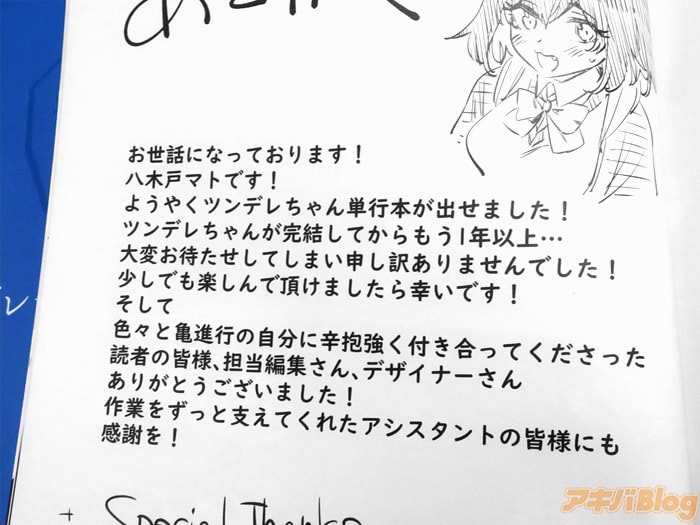 あとがき
お世話になっております！
八木戸マトです！
ようやくツンデレちゃん単行本が出せました！
ツンデレちゃんが完結してからもう1年以上…
大変お待たせしてしまい申し訳ありませんでした！
少しでも楽しんで頂けましたら幸いです！
そして
色々と亀進行の自分に辛抱強く付き合ってくださった
読者の皆様、担当編集さん、デザイナーさん
ありがとうございました！
作業をずっと支えてくれたアシスタントの皆様にも
感謝を！
+ Special Thanks
アキバBlog